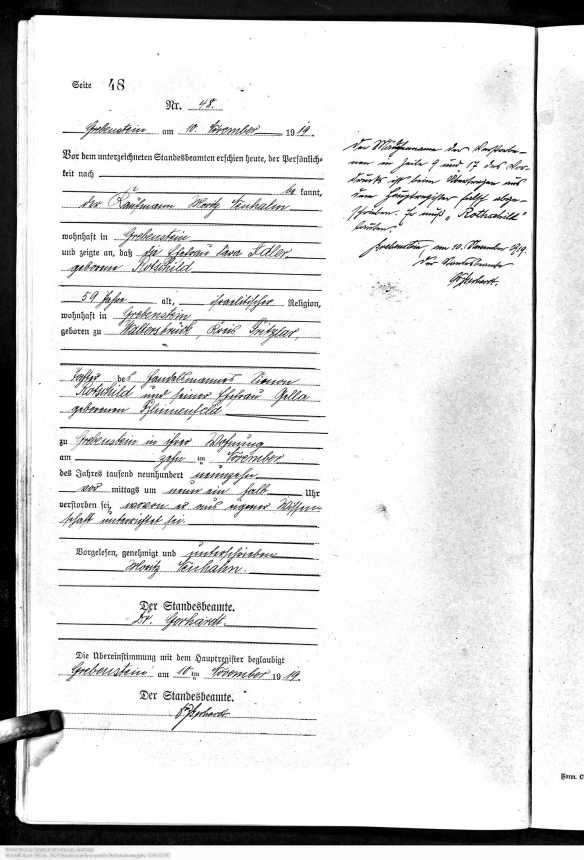 Seite 48
Nr. 48.
Grebenstein am 10. November 1919.
Vor dem unterzeichneten Standesbeamten erschien heute, der Persönlich-
keit nach
be kannt,
der Kaufmann Moritz
wohnhaft in Grebenstein
und zeigte an, daß die Ehefrau Sara Adler
geborene Rotschild
59 Jahre alt, israelitischer Religion,
wohnhaft in Grebenstein,
geboren zu Waltersbrück, Kreis Fritzlar,
Tochter des Handelsmannes Simon
Rotschild und seiner Ehefrau Gella
geborenen Blumenfeld
zu Grebenstein in ihrer Wohnung
am zehn ten November
des Jahres tausend neunhundert neunzehn
vor mittags um neun ein halb Uhr
verstorben sei, wovon er aus eigener Wissen-
schaft unterrichtet sei.
Vorgelesen, genehmigt und unterschrieben
Moritz
Der Standesbeamte.
Dr. Gerhardt.
Die Übereinstimmung mit dem Hauptregister beglaubigt
Grebenstein am 10 ten November 1919.
Der Standesbeamte.
Gerhardt
Der Mädchenname der Verstorbe-
nen in Zeile 9 und 17 des Vor-
drucks ist beim Übertragen aus
dem Hauptregister falsch abge-
schrieben. Er muß "Rothschild"
lauten.
Grebenstein, am 10. November 1919.
Der Standesbeamte
Gerhardt.
Form. C